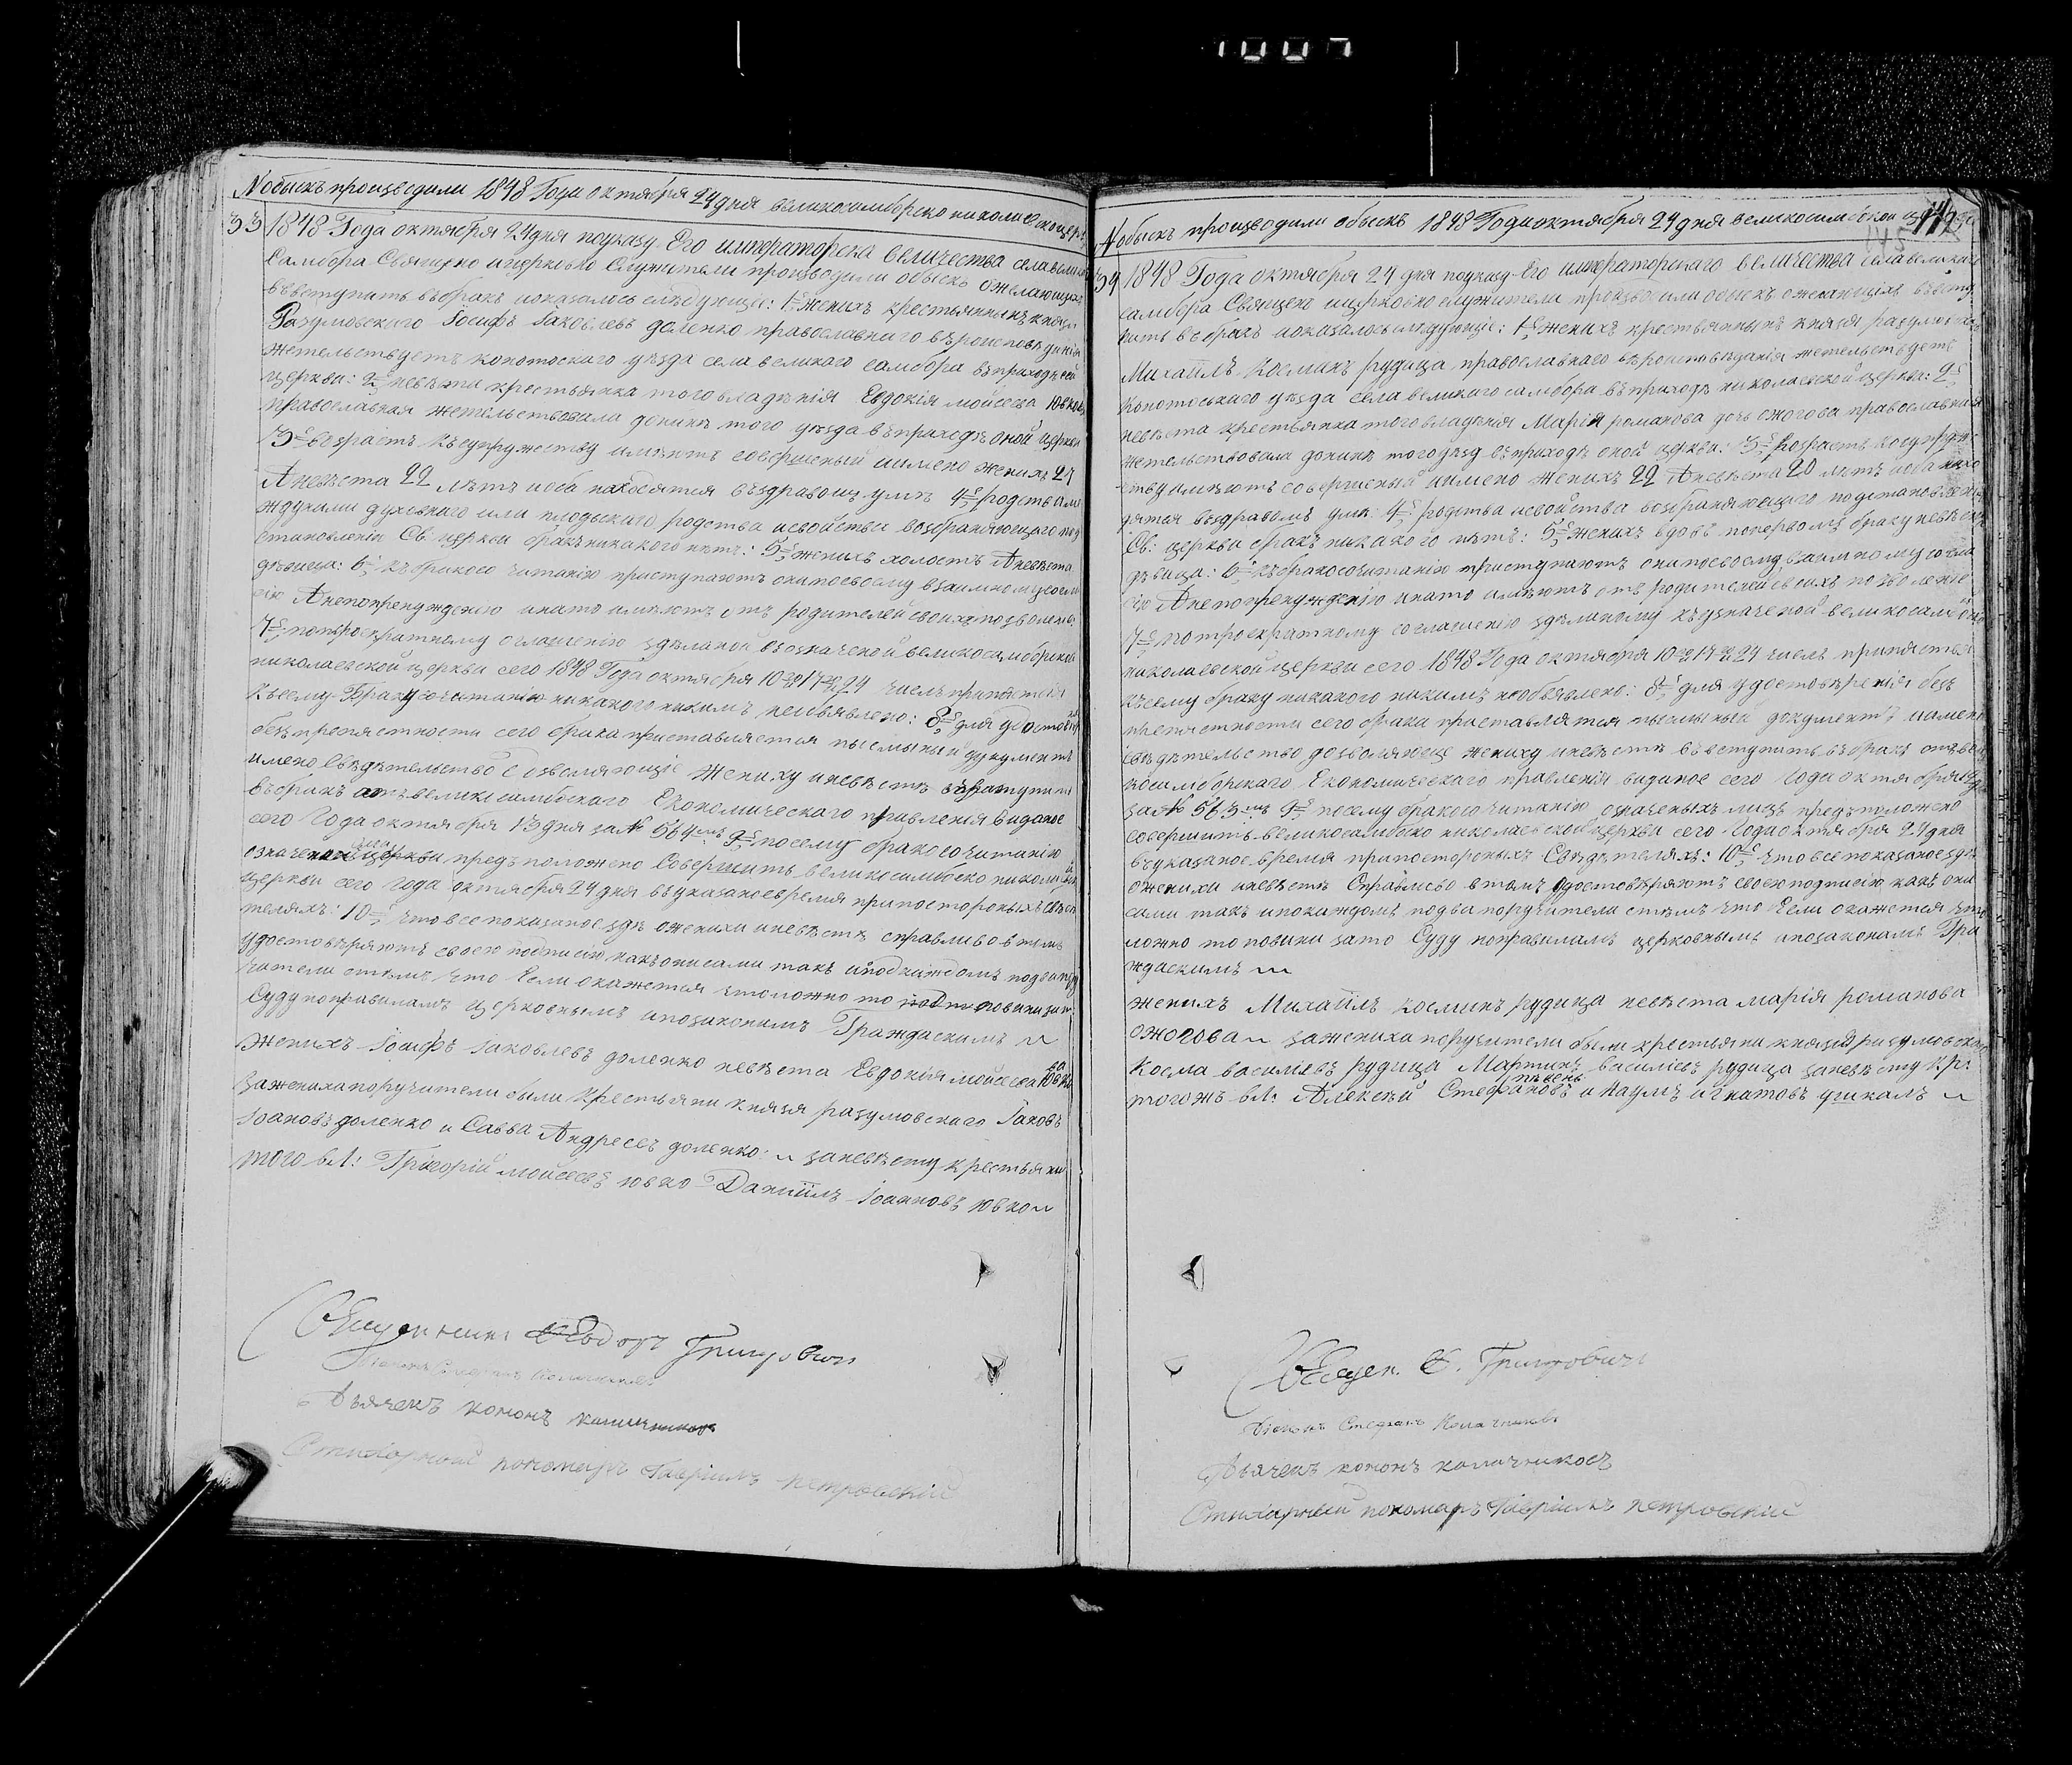 № обыскъ производили 1848 Года октября 24 дня великосамборско николаевской церк
33 1848 Года октября 24 дня поуказу Его императорска величества села велика
Самбора Священо ицерковно Служители производили обыскъ ожелающихъ
въвступить въбракъ ипоказалось следующее: 1е женихъ крестьянинъ князя
Разумовского Іосифъ Іаковлевъ доленко православнаго вѣроисповѣданія
жетельствуетъ конотоского уѣзда села великого самбора въприходѣ сей
церкви: 2е невѣста крестьянка того владѣнія Евдокія мойсеева Ювкова
православная жетельствовала донинѣ того уѣзда въприходѣ оной церкви
3е возрастъ къ супружеству имѣютъ совершеный имено женихъ 24
Аневѣста 22 лѣтъ иоба находятся въздравомъ умѣ 4е родства
ждуними духовнаго или плодскаго родства исвойства возбраняющаго по
становленію Св: церкви бракъ никакого нѣтъ: 5е женихъ холостъ Аневѣста
дѣвица: 6е къбракосочитанію приступаютъ они посвоему взаимному согла
сію Анепопренужденію инато имѣютъ отъ родителей своихъ позволеніе:
7е потроекратному оглашенію здѣланой въозначеной великосамборской
николаевской церкви сего 1848 Года октября 10го 17го 24 числъ припятствія
къ сему Браку сочитанію никакого никимъ необявлено: 8е для удостовѣ
безпрепятности сего брака приставляется писменый документъ
имено Свѣдѣтельство дозволяющіе Жениху иневѣстѣ вступить
въбракъ отъ великосамбоского Економического правленія виданое
сего Года октября 13 дня за № 564мъ 9е посему бракосочитанію
означеныхъ предъположено Совершить великосамбоско николаевской
церкви сего Года октября 24 дня въуказаное время припостороныхъ свѣдѣ
теляхъ: 10е что все показаное здѣ оженихи иневѣстѣ справливо втомъ
удостовѣряютъ своею подписію какъ они сами такъ ипокаждомъ подва пору
чители стѣмъ что Если окажется что ложно то повини зато
Суду поправиламъ церковнымъ ипозаконамъ Граждаскимъ
женихъ Іосифъ Іаковлевъ доленко невѣста Евдокія мойсеева Ювкова
зажениха поручители были крестьяни князя разумовскаго Іаковъ
Іоановъ доленко и Савва Андреевъ доленко заневѣсту крестьяни
того вл: Григорій мойсеевъ ювко Даніилъ Іоанновъ ювко
Священникъ Ѳеодоръ Григоровичъ
Діаконъ Стефанъ Колачников
Дьячекъ кононъ калачников
Стихарный пономарь Гавріилъ петровскій
№ обыскъ производили обыскъ 1848 Года октября 24 дня великосамбской
145
34 1848 Года октября 24 дня поуказу Его императорскаго величества села великаго
самбора Священо ицерковно служители производили обыскъ ожелающихъ въвсту
пить въбракъ ипоказалось следующіе: 1е женихъ крестьянинъ князя разумовскаго
Михаилъ Косминъ рудица православнаго вѣроисповѣданія жетельствуетъ
Конотоського уѣзда села великого самбора въприходѣ николаевской церкви: 2е
невѣста крестьянка того владѣнія Марія романова дочь ожогова православная
жетельствовала донинѣ того уѣзд въприходѣ оной церкви: 3е Возрастъ косупруже
ству имѣютъ совершеный имено женихъ 22 Аневѣста 20 лѣтъ иоба нахо
дятся въздравомъ умѣ: 4е родства исвойства возбраняющаго постановленію
Св: церкви бракъ никакого нѣтъ: 5е женихъ вдовъ поперьвому браку невѣста
дѣвица: 6е къбракосочитанію приступаютъ они посвоему взаимному согла
сію Анепопренужденію инато имѣютъ отъ родителей своихъ позволеніе
7е потроекратному соглашенію здѣланому въозначеной великосамбоско
николаевской церкви сего 1848 Года октября 10го 17го 24 числъ припятствія
къ сему браку никакого никимъ необявлено: 8е для удостовѣренія без
препятности сего брака приставляется писменый документъ имено
свѣдѣтельство дозволяюще жениху иневѣстѣ въвступить въбракъ отъ вели
косамборского Економическаго правленія виданое сего Года октября
за № 563мъ 9е посему бракосочитанію означеныхъ лицъ предъположено
совершить великосамбоско николаевской церкви сего Года октября 24 дня
въуказаное время припостороныхъ Свѣдѣтеляхъ: 10е что все показаное здѣ
оженихи иневѣстѣ Справливо втомъ удостовѣряютъ своею подписію какъ они
сами такъ ипокаждомъ подва поручители стѣмъ что Если окажется что
ложно то повини зато Суду поправиламъ церковнымъ ипозаконамъ Гра
ждаскимъ
женихъ Михаилъ Косминъ рудица невѣста марія романова
ожогова зажениха поручители были крестьяни князя разумовскаго
Косма василіевъ рудица Мартинъ василіевъ рудица заневѣсту кр:
тогожъ вл: Алексѣй Стефановъ и Наумъ игнатовъ
Священ. Ѳ. Григоровичъ
Діаконъ Стефанъ Колачниковъ
Дьячекъ кононъ калачниковъ
Стихарный пономарь Гавріилъ петровскій